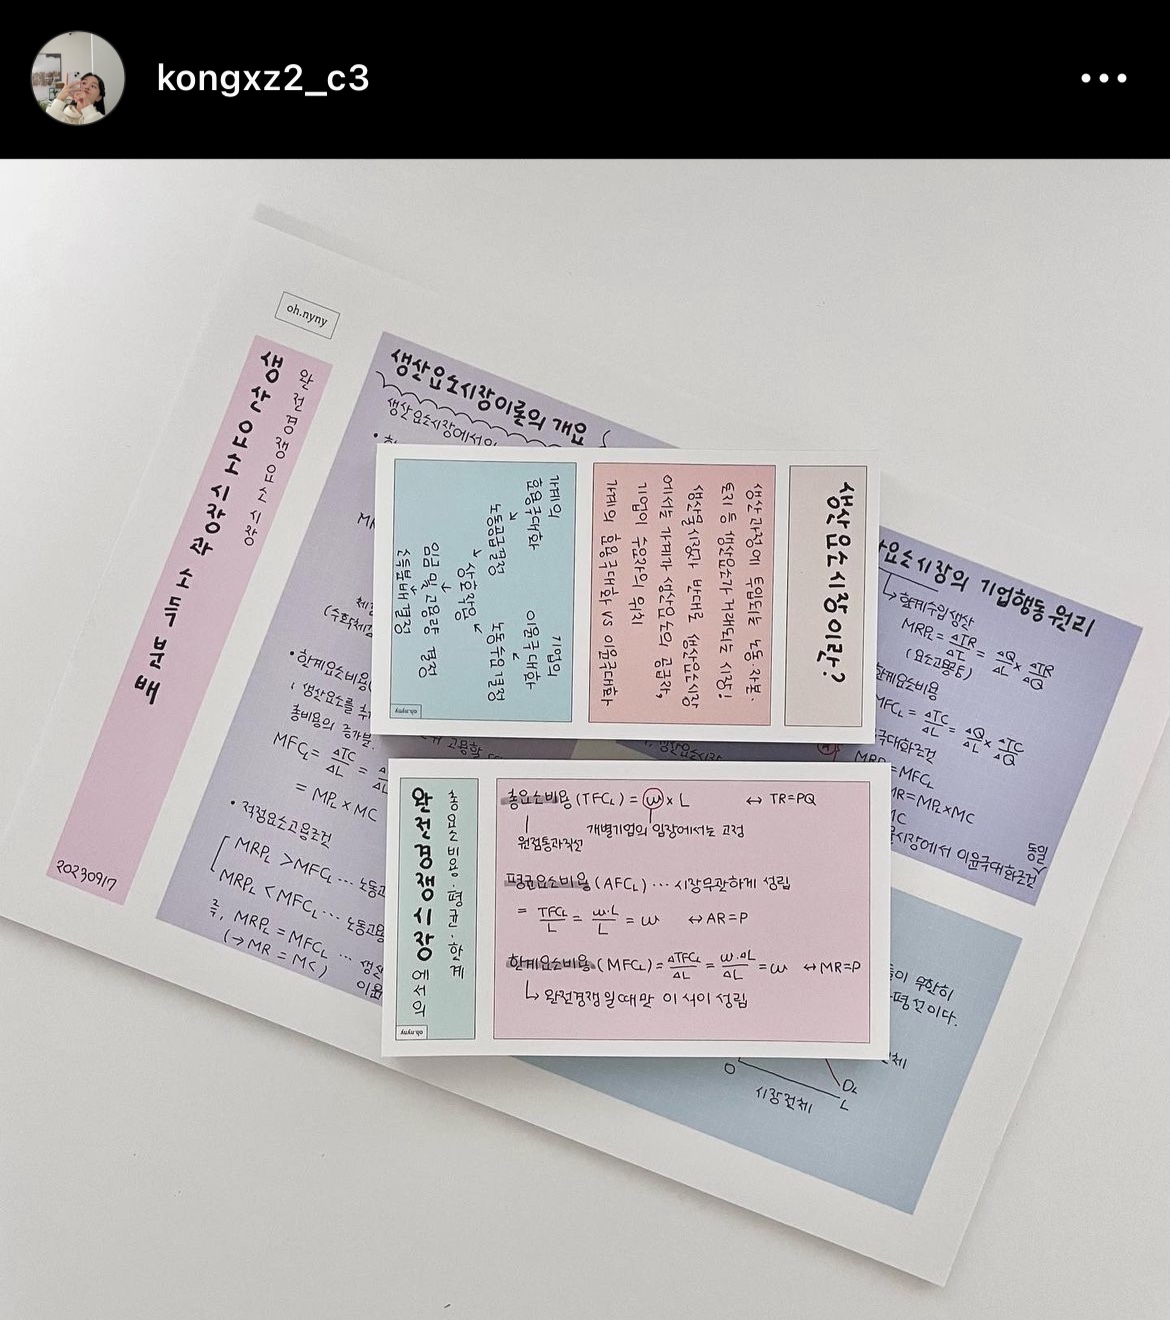 kongxz2_c3
oh.nyny
완전경쟁요소시장
생산요소시장과 소득분배
20230917
생산요소시장이론의 개요
생산요소시장에서의
• 한계요소비용(
생산요소를 추가
총비용의 증가분.
MFCL = ΔTC/ΔL =
= MPL × MC
• 적정요소고용조건
MRPL > MFCL … 노동고
MRPL < MFCL … 노동고용
즉, MRPL = MFCL …
이윤
요소시장의 기업행동원리
↳ 한계수입생산
MRPL = ΔTR/ΔL = ΔQ/ΔL × ΔTR/ΔQ
(요소고용량)
한계요소비용
MFCL = ΔTC/ΔL = ΔQ/ΔL × ΔTC/ΔQ
극대화조건
MRPL = MFCL
MR = MPL × MC
시장에서 이윤극대화조건
동일
들이 무한히
평선이다.
0
DL
L
시장전체
생산요소시장이란?
생산과정에 투입되는 노동·자본·
토지 등 생산요소가 거래되는 시장!
생산물시장과 반대로 생산요소시장
에서는 가계가 생산요소의 공급자,
기업이 수요자의 위치
가계의 효용극대화 vs 이윤극대화
가계의
효용극대화
↘
노동공급결정
기업의
이윤극대화
↙
노동수요결정
↘ 상호작용 ↙
↓
임금 및 고용량 결정
↓
소득분배 결정
oh.nyny
총요소비용·평균·한계
완전경쟁시장에서의
oh.nyny
총요소비용(TFCL) = ω × L ↔ TR=PQ
원점통과직선
개별기업의 입장에서는 고정
평균요소비용(AFCL) … 시장무관하게 성립
= TFCL/L = ω·L/L = ω ↔ AR=P
한계요소비용(MFCL) = ΔTFCL/ΔL = ω·ΔL/ΔL = ω ↔ MR=P
↳ 완전경쟁일때만 이 식이 성립